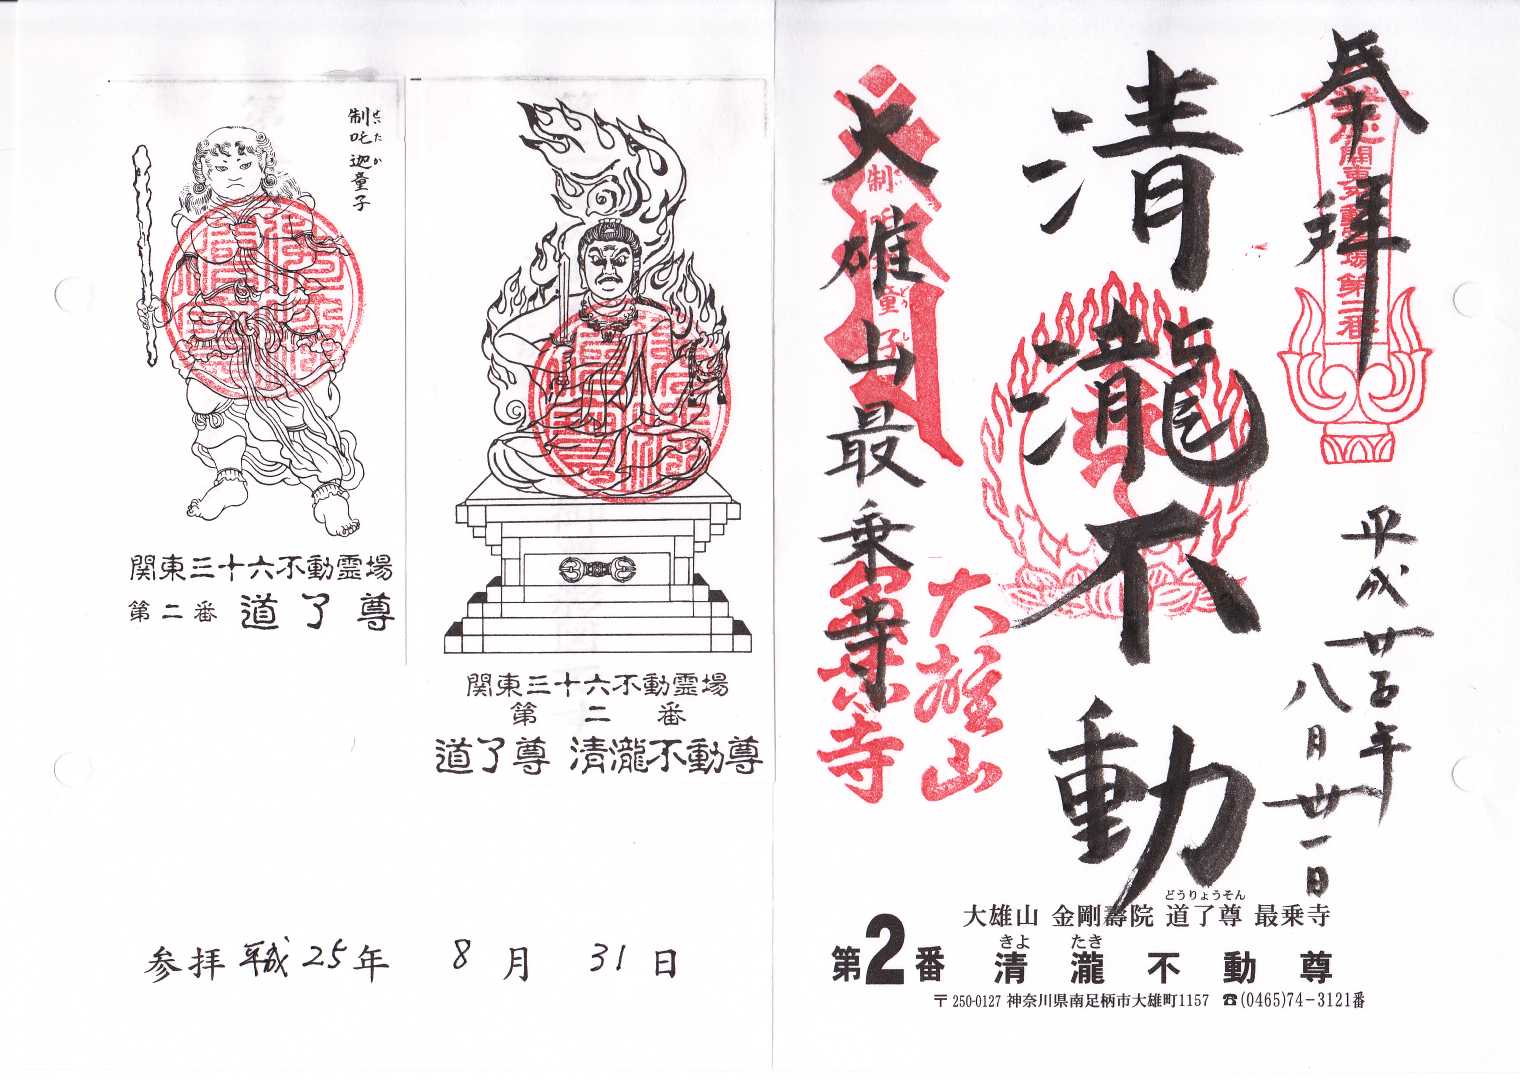 奉拝
平成廿五年
八月卅一日
清瀧不動
大雄山最乗寺
関東不動霊場第二番
大雄山
最乗寺
どうりょうそん
大雄山 金剛壽院 道了尊 最乗寺
きよ たき
第2番 清瀧不動尊
〒250-0127 神奈川県南足柄市大雄町1157 ☎(0465)74-3121番
せいたか
制吒迦童子
関東三十六不動霊場
第二番 道了尊
関東三十六不動霊場
第二番
道了尊 清瀧不動尊
参拝 平成25年 8月 31日